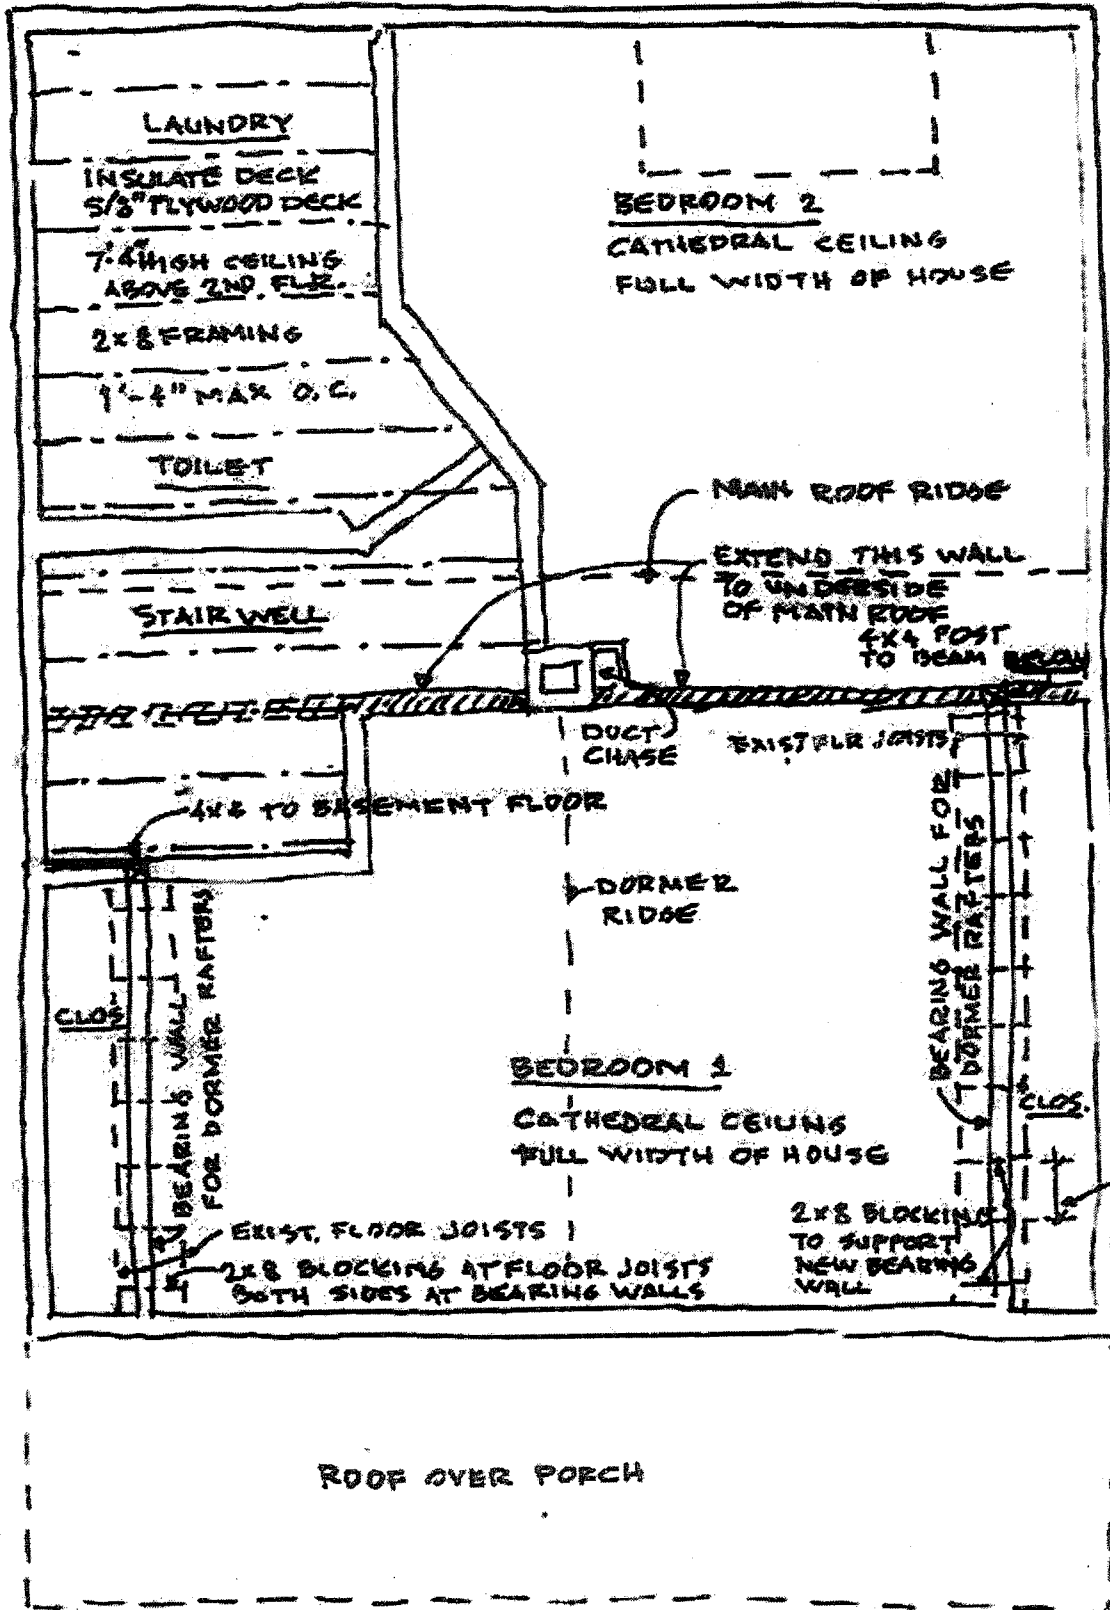 LAUNDRY
INSULATE DECK
5/8" PLYWOOD DECK
7'-4" HIGH CEILING
ABOVE 2ND. FLR.
2x8 FRAMING
1'-4" MAX O.C.
TOILET
STAIRWELL
BEDROOM 2
CATHEDRAL CEILING
FULL WIDTH OF HOUSE
MAIN ROOF RIDGE
EXTEND THIS WALL
TO UNDERSIDE
OF MAIN ROOF
4x4 POST
TO BEAM BELOW
DUCT
CHASE
EXIST FLR JOISTS
4x4 TO BASEMENT FLOOR
DORMER
RIDGE
BEARING WALL FOR
DORMER RAFTERS
CLOS.
BEARING WALL
FOR DORMER RAFTERS
BEDROOM 1
CATHEDRAL CEILING
FULL WIDTH OF HOUSE
CLOS.
EXIST. FLOOR JOISTS
2x8 BLOCKING AT FLOOR JOISTS
BOTH SIDES AT BEARING WALLS
2x8 BLOCKING
TO SUPPORT
NEW BEARING
WALL
ROOF OVER PORCH